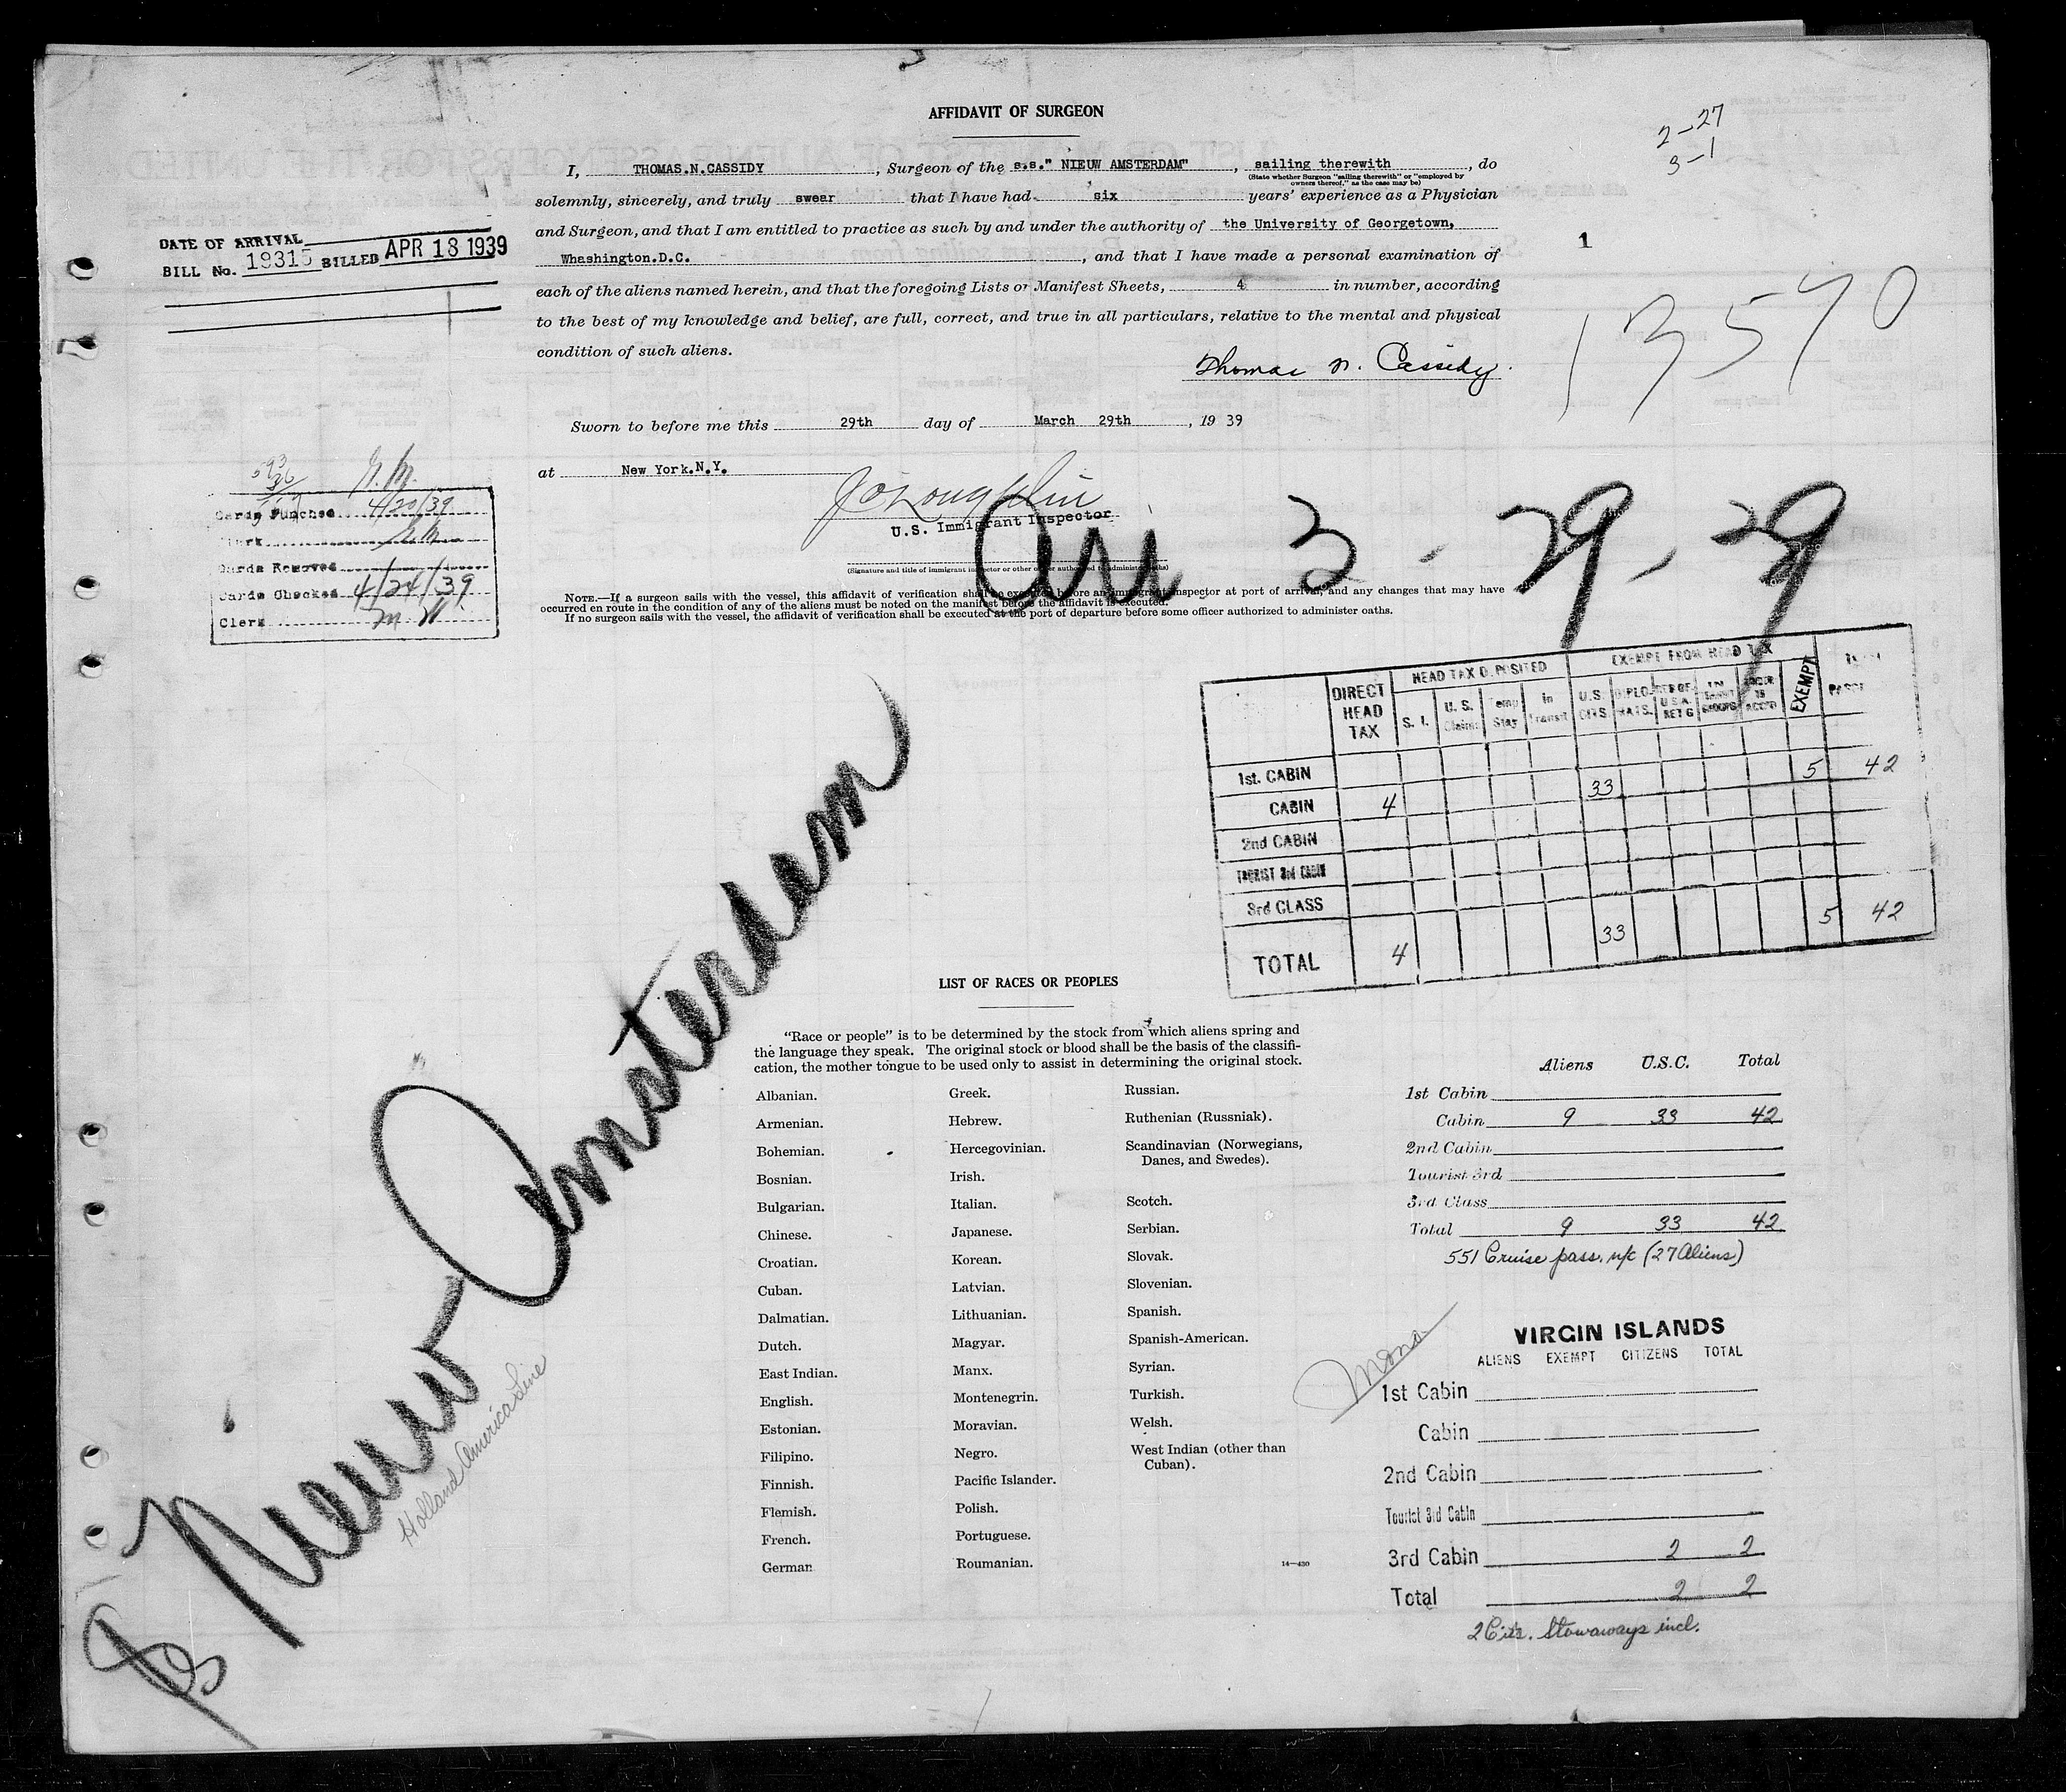 AFFIDAVIT OF SURGEON
2-27
3-1
I, THOMAS.N.CASSIDY, Surgeon of the s.s." NIEUW AMSTERDAM", sailing therewith, do
(State whether Surgeon "sailing therewith" or "employed by owners thereof," as the case may be)
solemnly, sincerely, and truly swear that I have had six years' experience as a Physician
and Surgeon, and that I am entitled to practice as such by and under the authority of the University of Georgetown,
Whashington.D.C., and that I have made a personal examination of
each of the aliens named herein, and that the foregoing Lists or Manifest Sheets, 4 in number, according
to the best of my knowledge and belief, are full, correct, and true in all particulars, relative to the mental and physical
condition of such aliens.
Thomas N. Cassidy
DATE OF ARRIVAL
BILL No. 19315 BILLED APR 18 1939
1
13570
Sworn to before me this 29th day of March 29th, 19 39
at New York.N.Y.
U.S. Immigrant Inspector
(Signature and title of immigrant inspector or other officer authorized to administer oaths)
Arr 3-29-39
Cards Punched 4/20/39
Clerk
Cards Removed
Cards Checked 4/24/39
Clerk
NOTE.—If a surgeon sails with the vessel, this affidavit of verification shall be executed before an immigrant inspector at port of arrival, and any changes that may have
occurred en route in the condition of any of the aliens must be noted on the manifest before the affidavit is executed.
If no surgeon sails with the vessel, the affidavit of verification shall be executed at the port of departure before some officer authorized to administer oaths.
DIRECT HEAD TAX
HEAD TAX DEPOSITED
EXEMPT FROM HEAD TAX
S. I. U. S. Claims Temp Stay in Transit U.S. CITS. DIPLOMATS. EXEMPT
1st. CABIN
CABIN 4 33 5 42
2nd CABIN
TOURIST 3rd CABIN
3rd CLASS
TOTAL 4 33 5 42
SS Nieuw Amsterdam
Holland America Line
LIST OF RACES OR PEOPLES
"Race or people" is to be determined by the stock from which aliens spring and
the language they speak. The original stock or blood shall be the basis of the classifi-
cation, the mother tongue to be used only to assist in determining the original stock.
Albanian.
Armenian.
Bohemian.
Bosnian.
Bulgarian.
Chinese.
Croatian.
Cuban.
Dalmatian.
Dutch.
East Indian.
English.
Estonian.
Filipino.
Finnish.
Flemish.
French.
German
Greek.
Hebrew.
Hercegovinian.
Irish.
Italian.
Japanese.
Korean.
Latvian.
Lithuanian.
Magyar.
Manx.
Montenegrin.
Moravian.
Negro.
Pacific Islander.
Polish.
Portuguese.
Roumanian.
Russian.
Ruthenian (Russniak).
Scandinavian (Norwegians,
Danes, and Swedes).
Scotch.
Serbian.
Slovak.
Slovenian.
Spanish.
Spanish-American.
Syrian.
Turkish.
Welsh.
West Indian (other than
Cuban).
14—430
Aliens U.S.C. Total
1st Cabin
Cabin 9 33 42
2nd Cabin
Tourist 3rd
3rd Class
Total 9 33 42
551 Cruise pass. n/c (27 Aliens)
VIRGIN ISLANDS
ALIENS EXEMPT CITIZENS TOTAL
1st Cabin
Cabin
2nd Cabin
Tourist 3rd Cabin
3rd Cabin 2 2
Total 2 2
2 Cits. Stowaways incl.